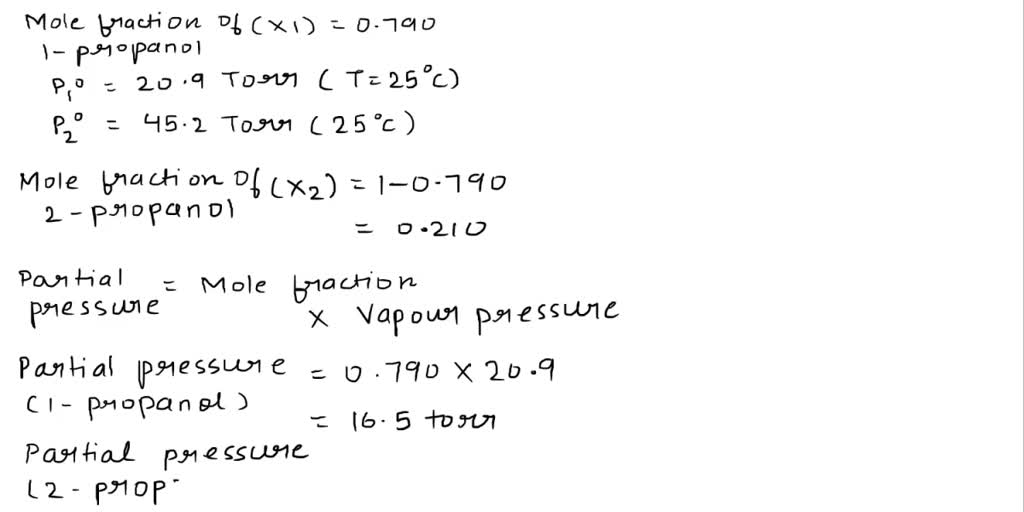 Mole fraction of (x1) = 0.790
1- propanol
P1° = 20.9 Torr ( T= 25°C)
P2° = 45.2 Torr ( 25°C)
Mole fraction of (x2) = 1-0.790
2-propanol
= 0.210
Partial pressure = Mole fraction
x Vapour pressure
Partial pressure = 0.790 x 20.9
(1-propanol)
= 16.5 torr
Partial pressure
(2- prop